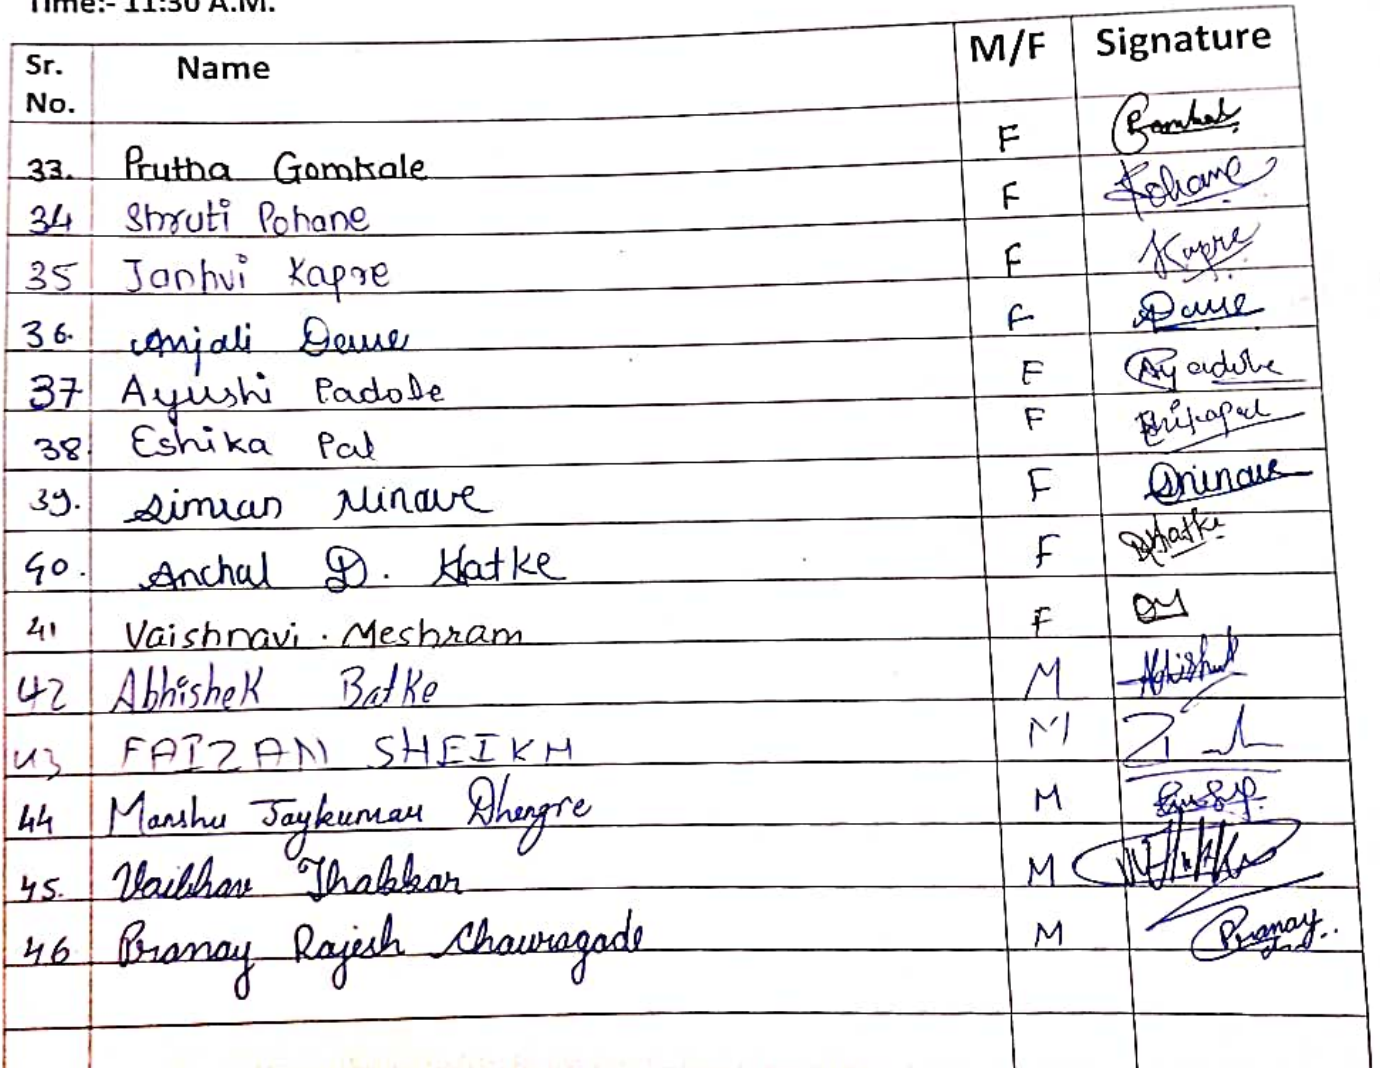 Time:- 11:30 A.M.
Sr. No. Name M/F Signature
33. Prutha Gomkale F
34 Shruti Pohane F Pohane
35 Janhvi Kapre F Kapre
36. Anjali F
37 Ayushi Padole F
38. Eshika Pal F
39. Simran Ninave F
40. Anchal D. Hatke F DHatke
41 Vaishnavi . Meshram F
42 Abhishek Batke M Abhishek
43 FAIZAN SHEIKH M
44 Manshu Jaykumar Dhengre M
45. Vaibhav Thakkar M
46 Pranay Rajesh Chawragade M Pranay